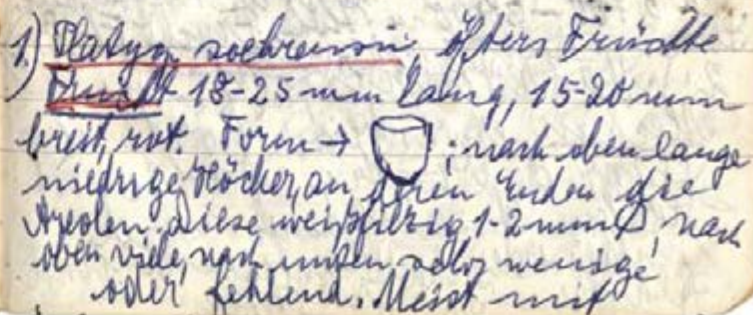 1.) Platyop. soehrensii, öfters Früchte
Frucht 18-25 mm lang, 15-20 mm
breit, rot. Form → ; nach oben lange
niedrige Höcker, an deren Enden die
Areolen. Diese weißfilzig 1-2 mm Ø, nach
oben viele, nach unten sehr wenige
oder fehlend. Meist mit